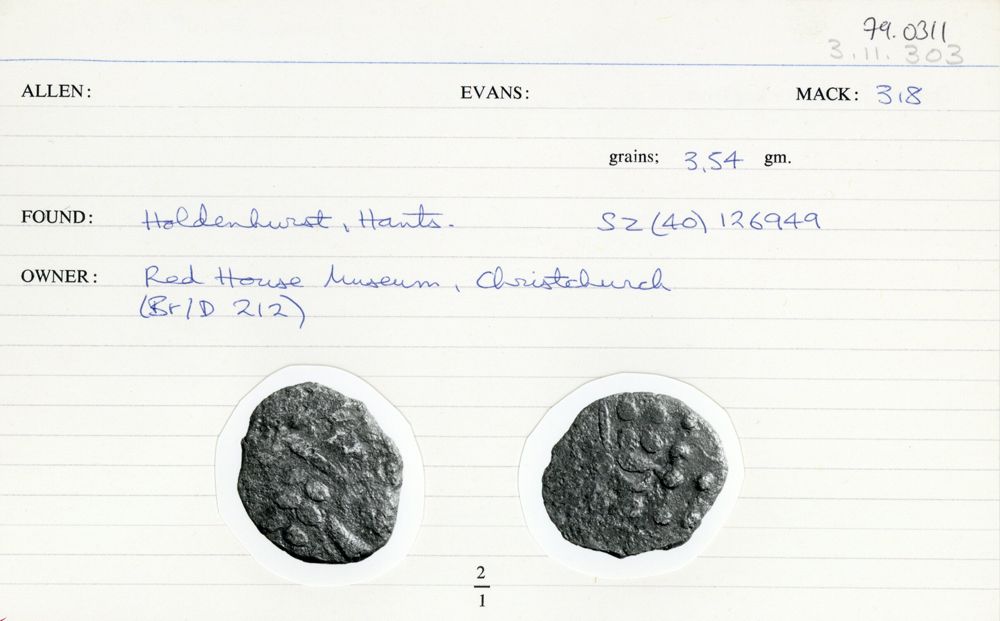 79.0311
3.11.303
ALLEN: EVANS: MACK: 318
grains; 3.54 gm.
FOUND: Holdenhurst, Hants. SZ (40) 126949
OWNER: Red House Museum, Christchurch
(Br/D 212)
2
1